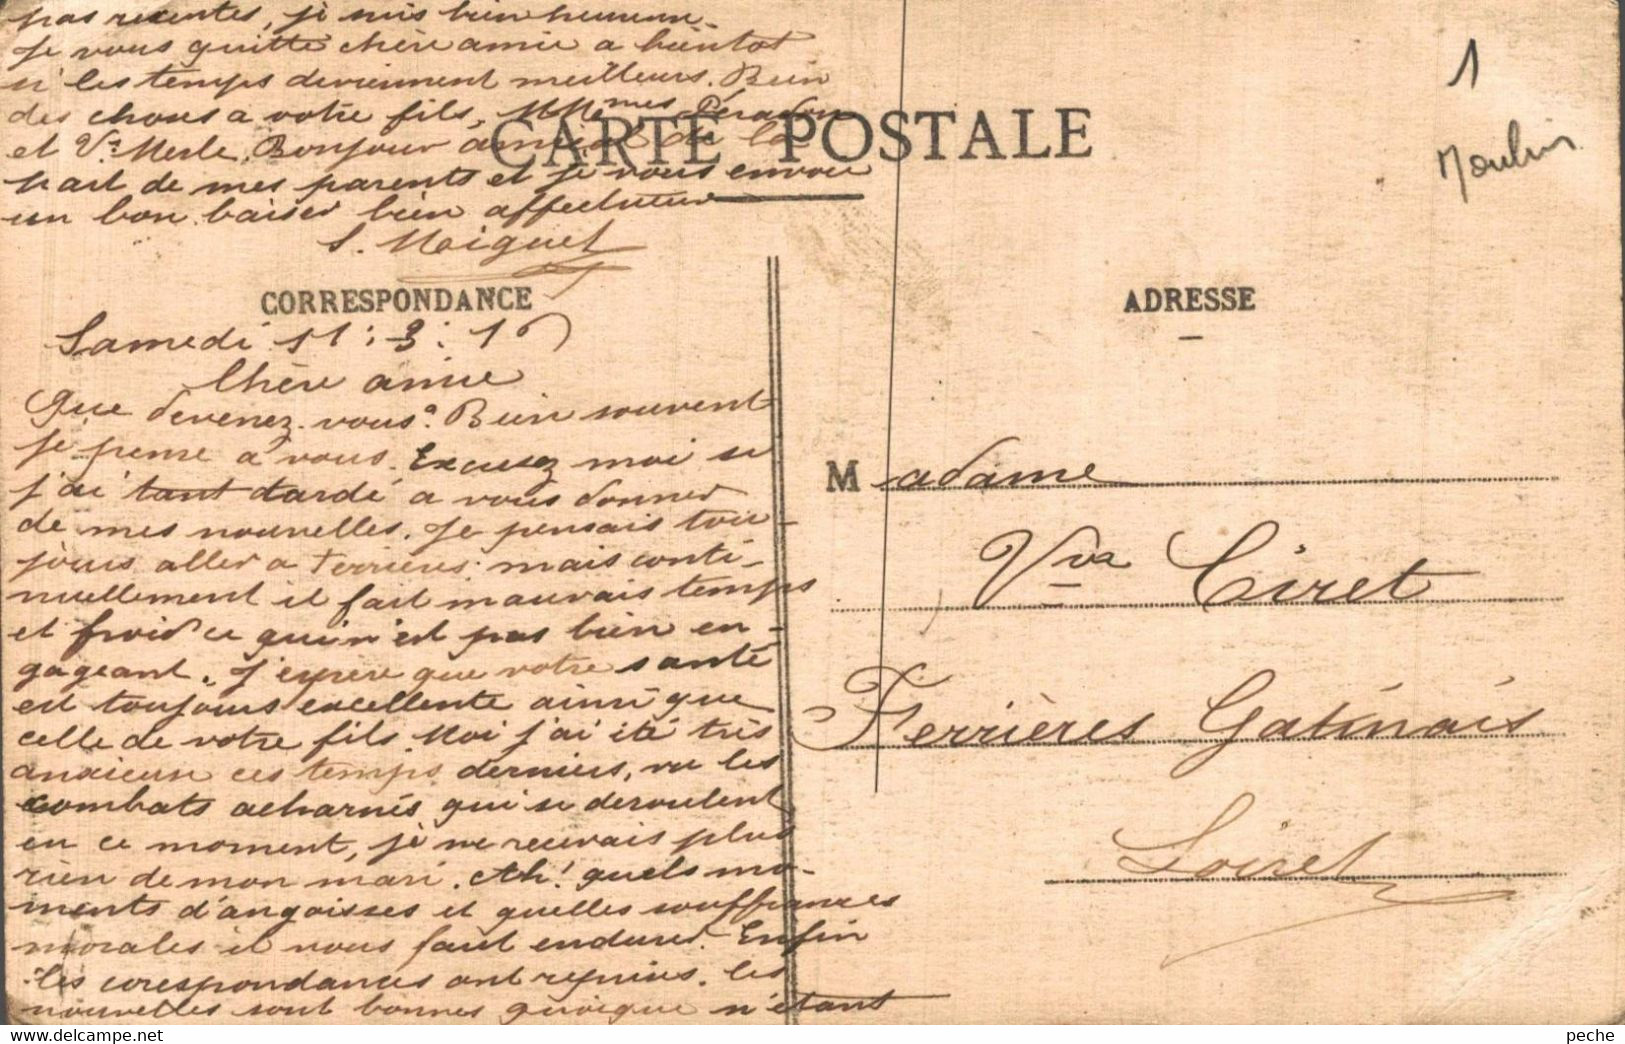 CARTE POSTALE
CORRESPONDANCE
Samedi 11:3:16
Chère amie
Que devenez-vous? Bien souvent
je pense à vous. Excusez moi si
j'ai tant tardé a vous donner
de mes nouvelles. Je pensais tou-
jours aller a Ferrières; mais conti-
nuellement il fait mauvais temps
et froid ce qui n'est pas bien en-
gageant. J'espère que votre santé
est toujours excellente ainsi que
celle de votre fils. Moi j'ai été très
anxieuse ces temps derniers, vu les
combats acharnés qui se déroulent
en ce moment, je ne recevais plus
rien de mon mari. Ah! quels mo-
ments d'angoisses et quelles souffrances
morales il nous faut endurer. Enfin
les corespondances ont repris. les
nouvelles sont bonnes quoique n'étant
pas recentes, je suis bien heureuse.
Je vous quitte chère amie a bientot
si les temps deviennent meilleurs. Bien
des choses a votre fils, MMmes Péradon
et Vve Merle. Bonjour amical de la
part de mes parents et je vous envoie
un bon baiser bien affectueux
S. Moiguet
ADRESSE
Madame
Vve Ciret
Ferrières Gatinais
Loiret
1
Moulin
peche